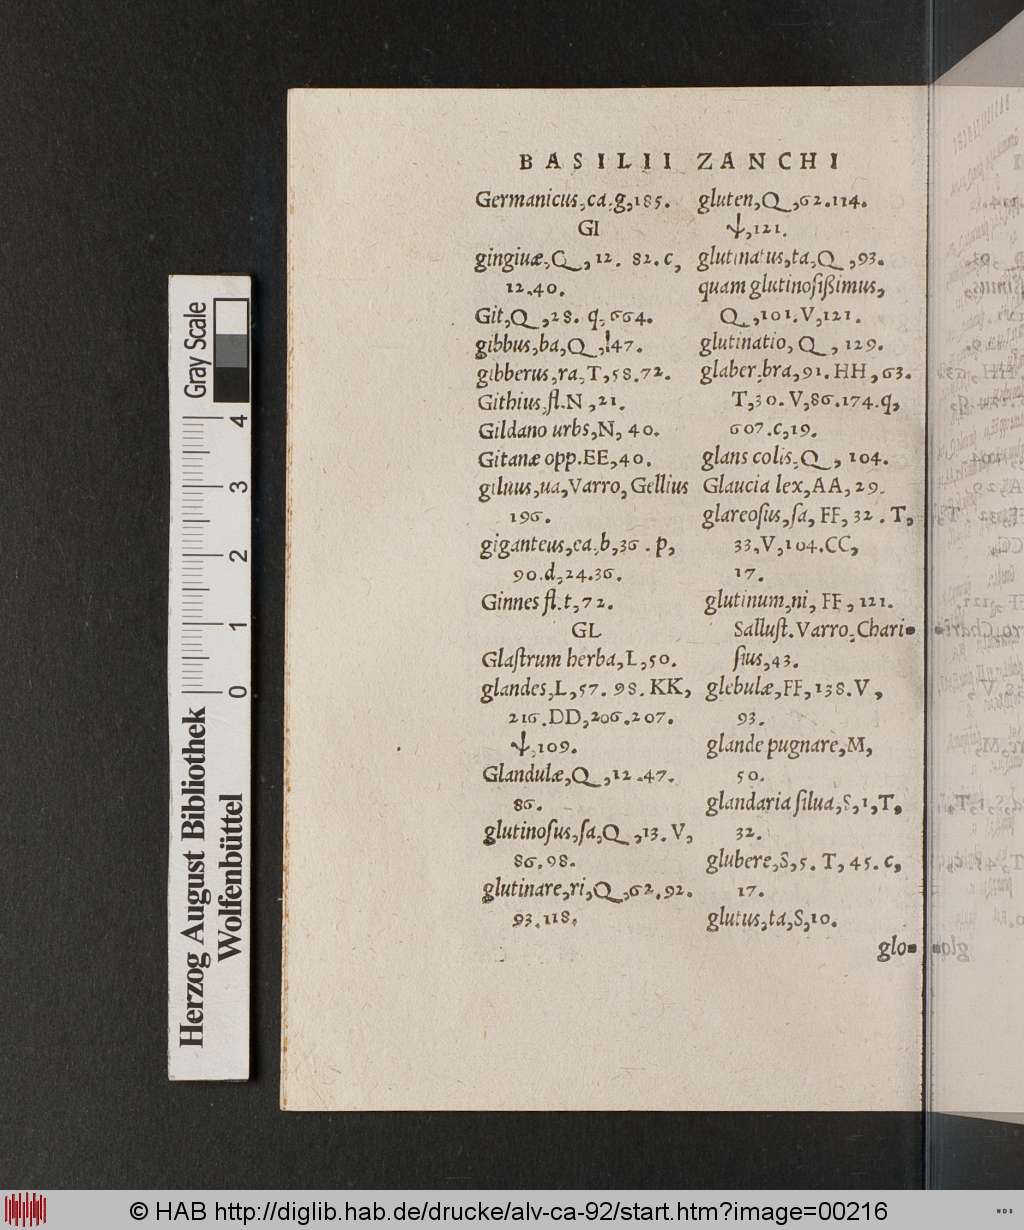 BASILII ZANCHI
Germanicus,ca,g,185.
GI
gingiuæ,Q,12. 82.c,
12.40.
Git,Q,28. q,664.
gibbus,ba,Q,147.
gibberus,ra,T,58.72.
Githius,fl.N,21.
Gildano urbs,N,40.
Gitanæ opp.EE,40.
giluus,ua,Varro,Gellius
196.
giganteus,ea,b,36.p,
90.d,24.36.
Ginnes fl.t,72.
GL
Glaſtrum herba,L,50.
glandes,L,57.98.KK,
216.DD,206.207.
ψ,109.
Glandulæ,Q,12.47.
86.
glutinoſus,ſa,Q,13.V,
86.98.
glutinare,ri,Q,62.92.
93.118.
gluten,Q,62.114.
ψ,121.
glutinatus,ta,Q,93.
quam glutinoſißimus,
Q,101.V,121.
glutinatio,Q,129.
glaber,bra,91.HH,63.
T,30.V,86.174.q,
607.c,19.
glans colis,Q,104.
Glaucia lex,AA,29.
glareoſus,ſa,FF,32.T,
33.V,104.CC,
17.
glutinum,ni,FF,121.
Salluſt.Varro,Chari-
ſius,43.
glebulæ,FF,138.V,
93.
glande pugnare,M,
50.
glandaria ſilua,S,1,T,
32.
glubere,S,5.T,45.c,
17.
glutus,ta,S,10.
glo-
Gray Scale
4
3
2
1
0
Herzog August Bibliothek
Wolfenbüttel
© HAB http://diglib.hab.de/drucke/alv-ca-92/start.htm?image=00216
WDB